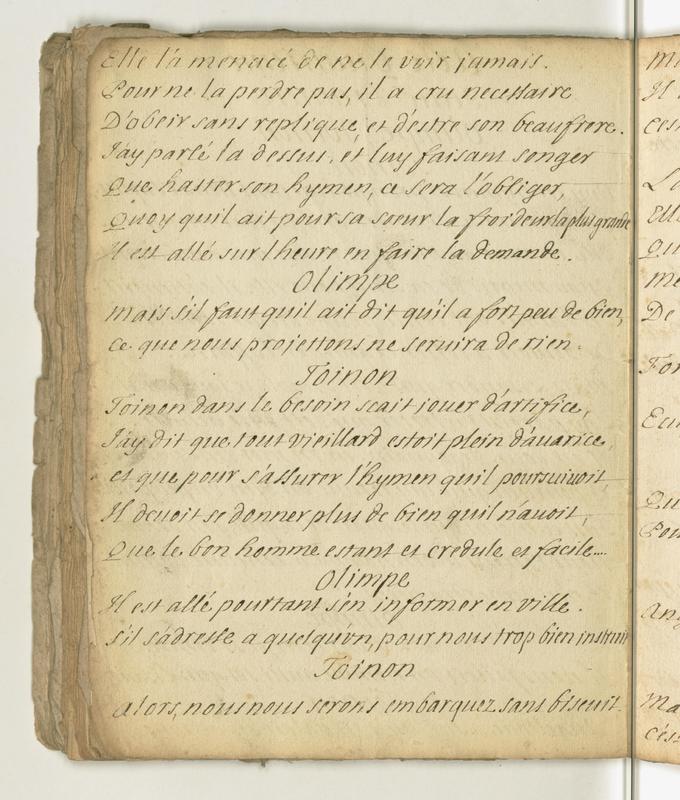 Elle l'a menacé de ne le voir jamais.
Pour ne la perdre pas, il a cru necessaire
D'obeir sans replique, et d'estre son beaufrere.
J'ay parlé la dessus, et luy faisant songer
Que haster son hymen, ce sera l'obliger,
Quoy quil ait pour sa soeur la froideur la plus grande
Il est allé sur lheure en faire la demande.
Olimpe
mais s'il faut quil ait dit qu'il a fort peu de bien,
ce que nous projettons ne seruira de rien.
Toinon
Toinon dans le besoin scait jouer d'artifice,
J'ay dit que tout vieillard estoit plein d'auarice,
et que pour s'assurer l'hymen quil poursuiuoit
Il deuoit se donner plus de bien quil n'auoit,
Que le bon homme estant et credule et facile....
Olimpe
Il est allé pourtant s'en informer en ville.
s'il s'adresse a quelqu'vn, pour nous trop bien instruit
Toinon
Alors, nous nous serons embarquez sans biscuit.
Il
cest
La
Elle
qu
me
De
For
Ecu
Qu
Pou
any
Ma
cést